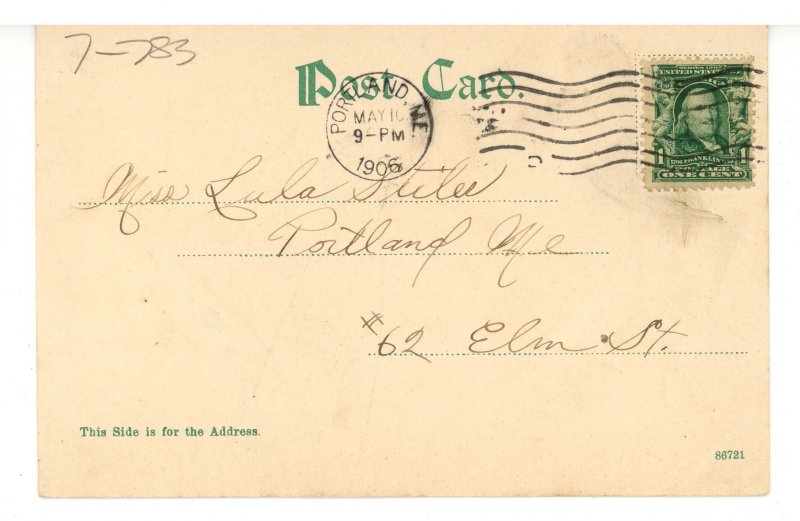 7-783
Post Card.
PORTLAND, ME.
MAY 10
9-PM
1906
SERIES 1902
UNITED STATES
1 1
BENJ. FRANKLIN
POSTAGE
ONE CENT
Miss Lula Stiles
Portland Me
#62 Elm St.
This Side is for the Address.
86721